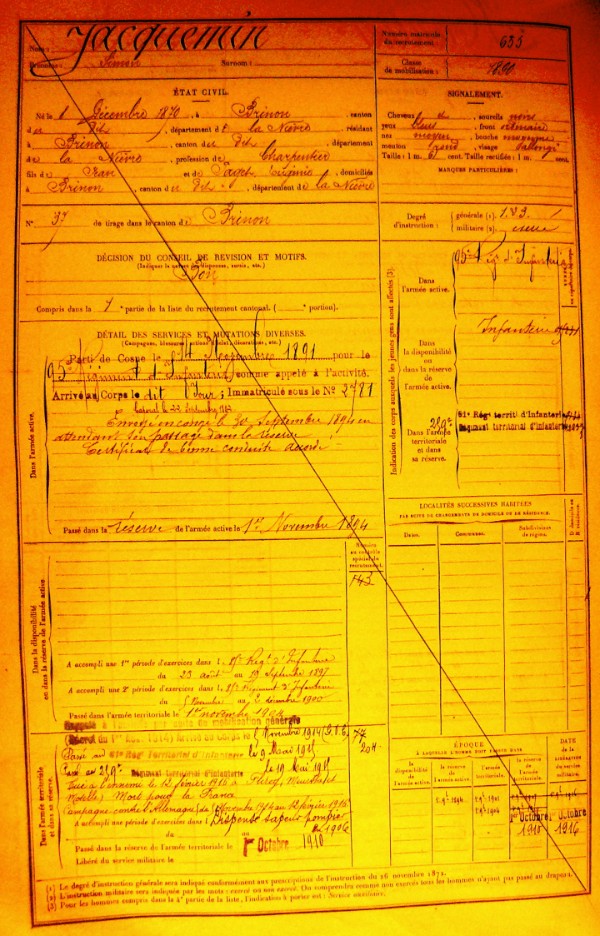 Nom : Jacquemin
Prénoms : Simon Surnom :
Numéro matricule du recrutement : 635
Classe de mobilisation : 1890
ÉTAT CIVIL.
Né le 1 Décembre 1870, à Brinon, canton
dudit, département de la Nièvre, résidant
à Brinon, canton dudit, département
de la Nièvre, profession de Charpentier
fils de Jean et de Eugénie, domiciliés
à Brinon, canton dudit, département de la Nièvre
N° 37 de tirage dans le canton de Brinon
SIGNALEMENT.
Cheveux et sourcils noirs
yeux bleus, front ordinaire
nez moyen, bouche moyenne
menton rond, visage allongé
Taille : 1 m. cent. Taille rectifiée : 1 m. cent.
MARQUES PARTICULIÈRES :
Degré d'instruction : générale (1). 1.2.3.
militaire (2).
DÉCISION DU CONSEIL DE REVISION ET MOTIFS.
Bon
Compris dans la 1e partie de la liste du recrutement cantonal. ( portion).
DÉTAIL DES SERVICES ET MUTATIONS DIVERSES.
Parti de Cosne le 14 Novembre 1891 pour le
95e Régiment d'Infanterie, comme appelé à l'activité.
Arrivé au Corps le dit Jour ; Immatriculé sous le N° 2781
Envoyé en congé le 30 Septembre 1894 en
attendant son passage dans la réserve
Certificat de bonne conduite accordé
Passé dans la réserve de l'armée active le 1er Novembre 1894
Dans l'armée active.
Indication des corps auxquels les jeunes gens sont affectés (3).
Dans l'armée active.
95e Régt d'Infanterie
Dans la disponibilité ou dans la réserve de l'armée active.
Infanterie
Dans l'armée territoriale et dans sa réserve.
61e Régt territl d'infanterie
259e Régiment territorial d'infanterie
LOCALITÉS SUCCESSIVES HABITÉES
PAR SUITE DE CHANGEMENTS DE DOMICILE OU DE RÉSIDENCE.
Dates. Communes. Subdivisions de région. D. domicile ou R. résidence.
Numéro au contrôle spécial du recrutement.
143
Dans la disponibilité ou dans la réserve de l'armée active
A accompli une 1re période d'exercices dans l Régt d'Infanterie
du 23 août au 19 Septembre 1897
A accompli une 2e période d'exercices dans l Régiment d'Infanterie
du 5 Novembre au 2 décembre 1900
Passé dans l'armée territoriale le 1er novembre 1904
Dans l'armée territoriale et dans sa réserve.
Rappelé à l'activité de mobilisation générale
(Décret du 1er Août 1914) Arrivé au Corps le Novembre 1914
Passé au 61e Régt Territorial d'Infanterie le 9 Mars 1915
Passé au 259e Régiment territorial d'infanterie le 19 Mai 1915
Tué à l'ennemi le 12 février 1916 à Flirey, Meurthe et
Moselle) Mort pour la France
Campagne contre l'Allemagne, du Novembre 1914 au 12 février 1916
A accompli une période d'exercices dans l Dispensé sapeur pompier
du au en 1906
Passé dans la réserve de l'armée territoriale le 1er Octobre 1910
Libéré du service militaire le
ÉPOQUE
À LAQUELLE L'HOMME DOIT PASSER DANS
la disponibilité de l'armée active. la réserve de l'armée active. l'armée territoriale. la réserve de l'armée territoriale.
DATE DE la libération du service militaire.
1er Octobre 1910
Octobre 1916
(1) Le degré d'instruction générale sera indiqué conformément aux prescriptions de l'instruction du 26 novembre 1872.
(2) L'instruction militaire sera indiquée par les mots : exercé ou non exercé. On comprendra comme non exercés tous les hommes n'ayant pas passé au drapeau.
(3) Pour les hommes compris dans la 4e partie de la liste, l'indication à porter est : Service auxiliaire.